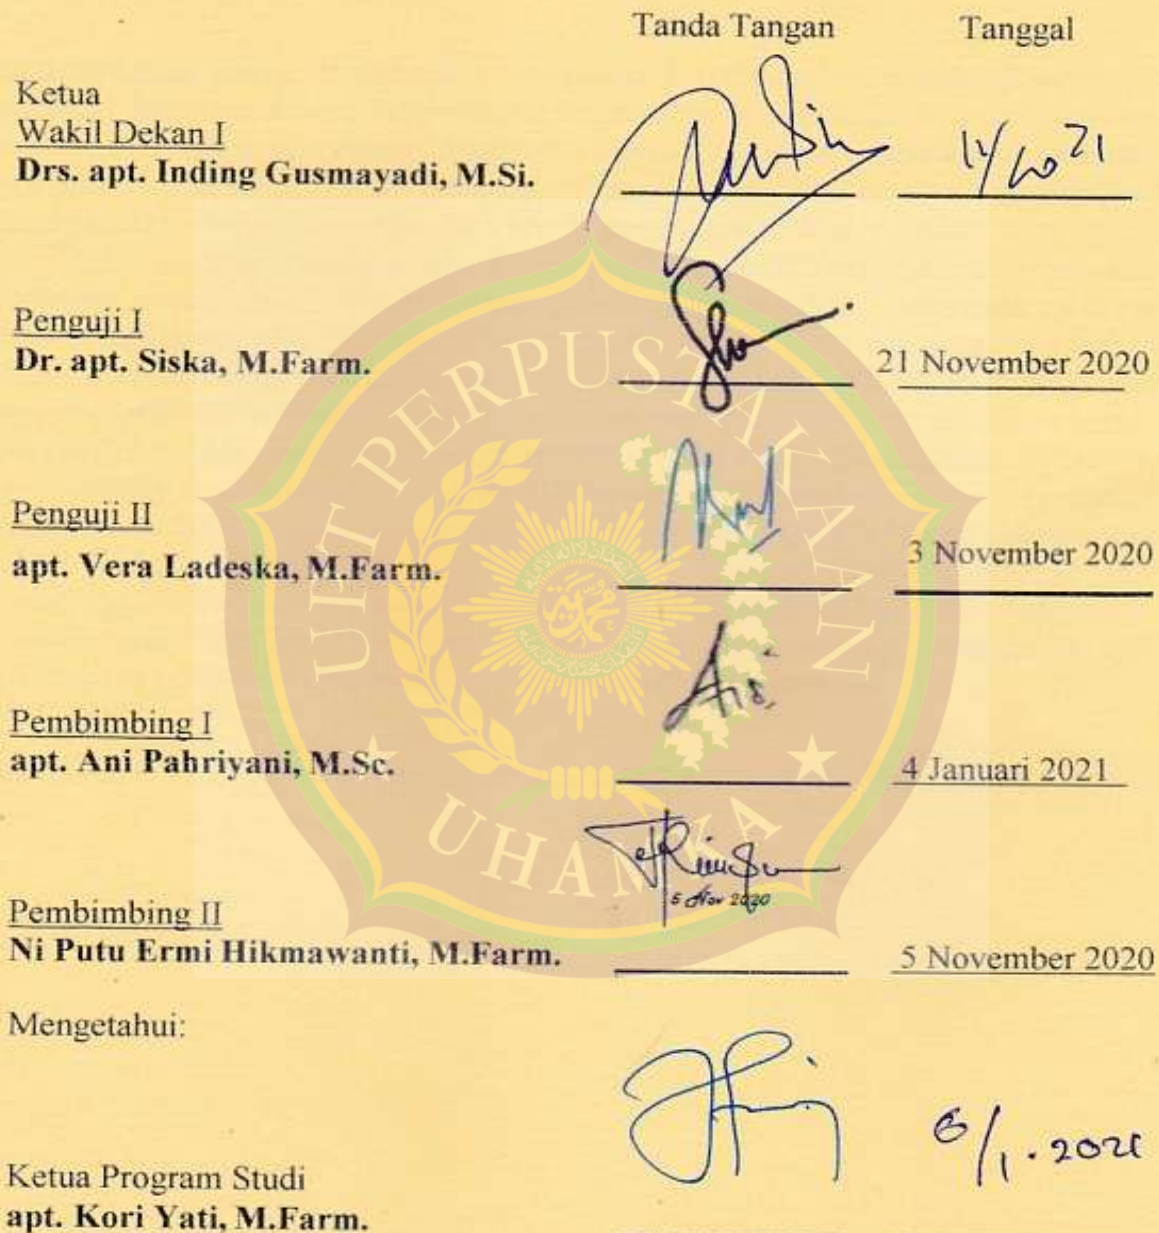 Tanda Tangan Tanggal
Ketua
Wakil Dekan I
Drs. apt. Inding Gusmayadi, M.Si.
21
Penguji I
Dr. apt. Siska, M.Farm. 21 November 2020
UIT PERPUSTAKAAN
Penguji II
apt. Vera Ladeska, M.Farm. 3 November 2020
Pembimbing I
apt. Ani Pahriyani, M.Sc. 4 Januari 2021
UHAMKA
5 Nov 2020
Pembimbing II
Ni Putu Ermi Hikmawanti, M.Farm. 5 November 2020
Mengetahui:
/1.2021
Ketua Program Studi
apt. Kori Yati, M.Farm.